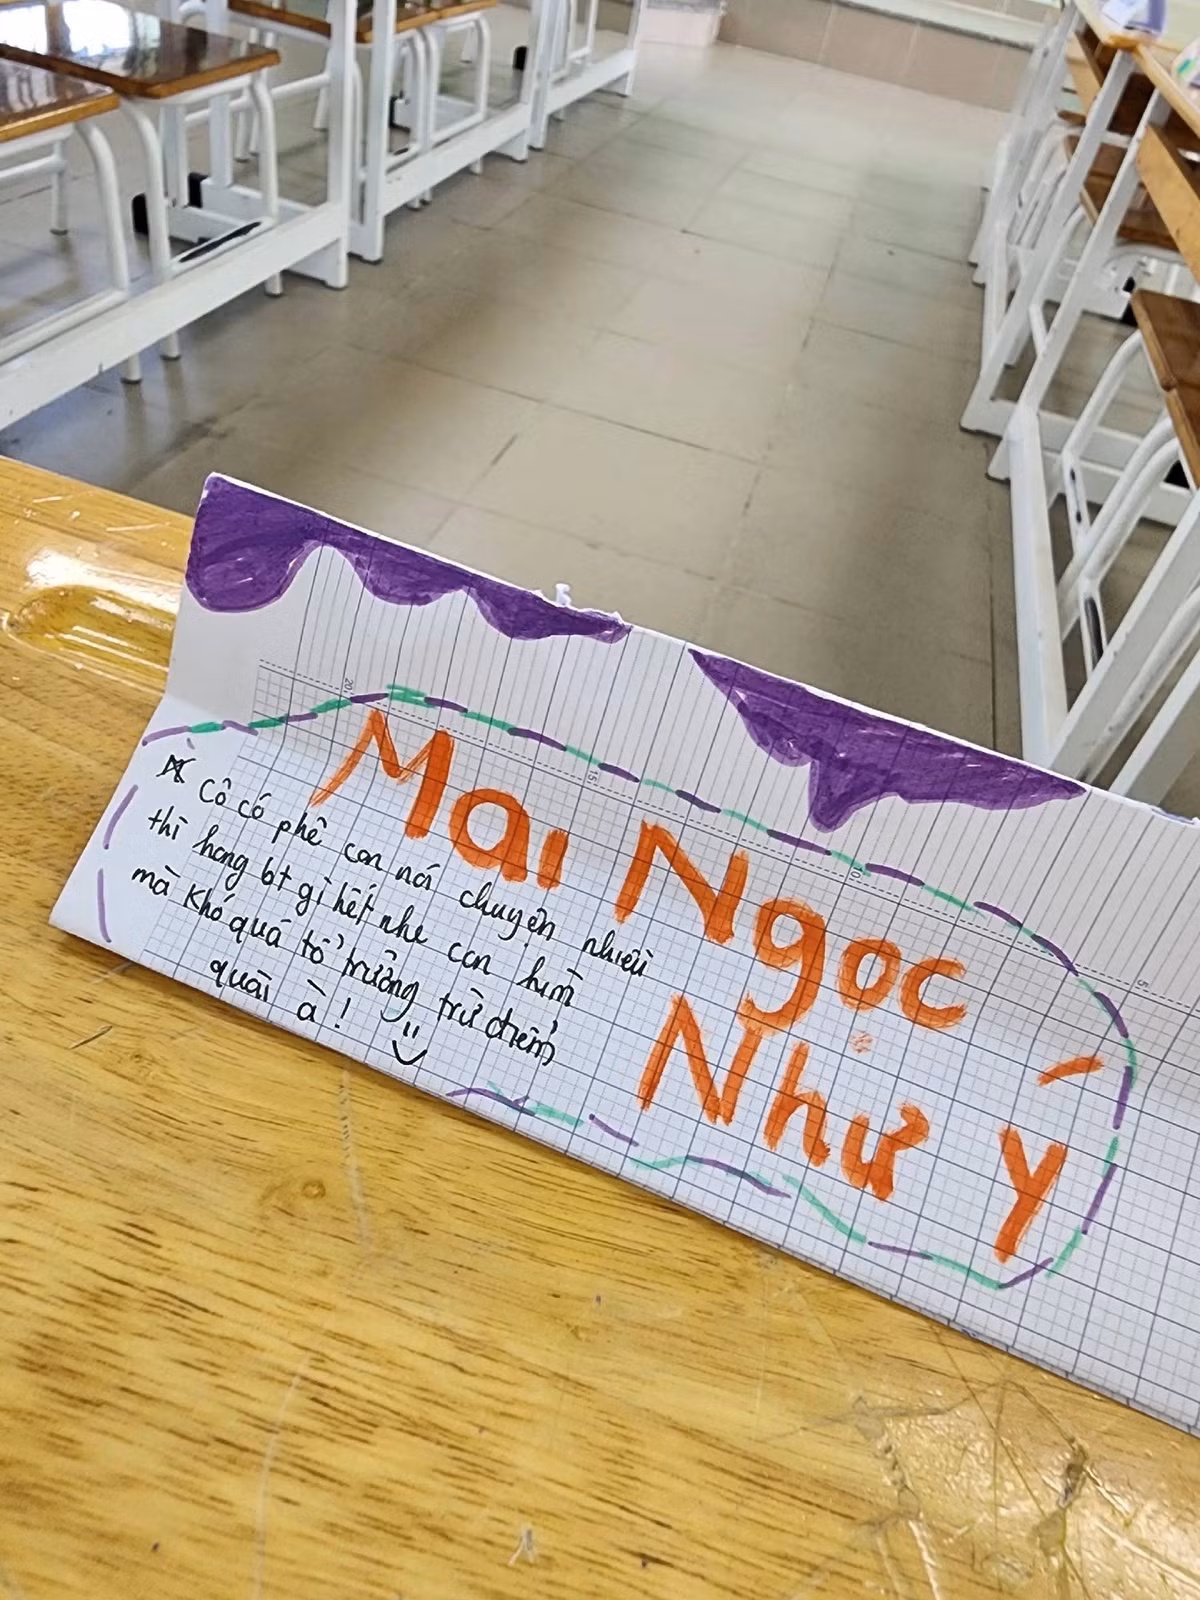 Mai Ngọc
Như Ý
Cô có phê con nói chuyện nhiều
thì hong bt gì hết nhe con hiền
mà khó quá tổ trưởng trừ điểm
quài à!
20
15
10
5